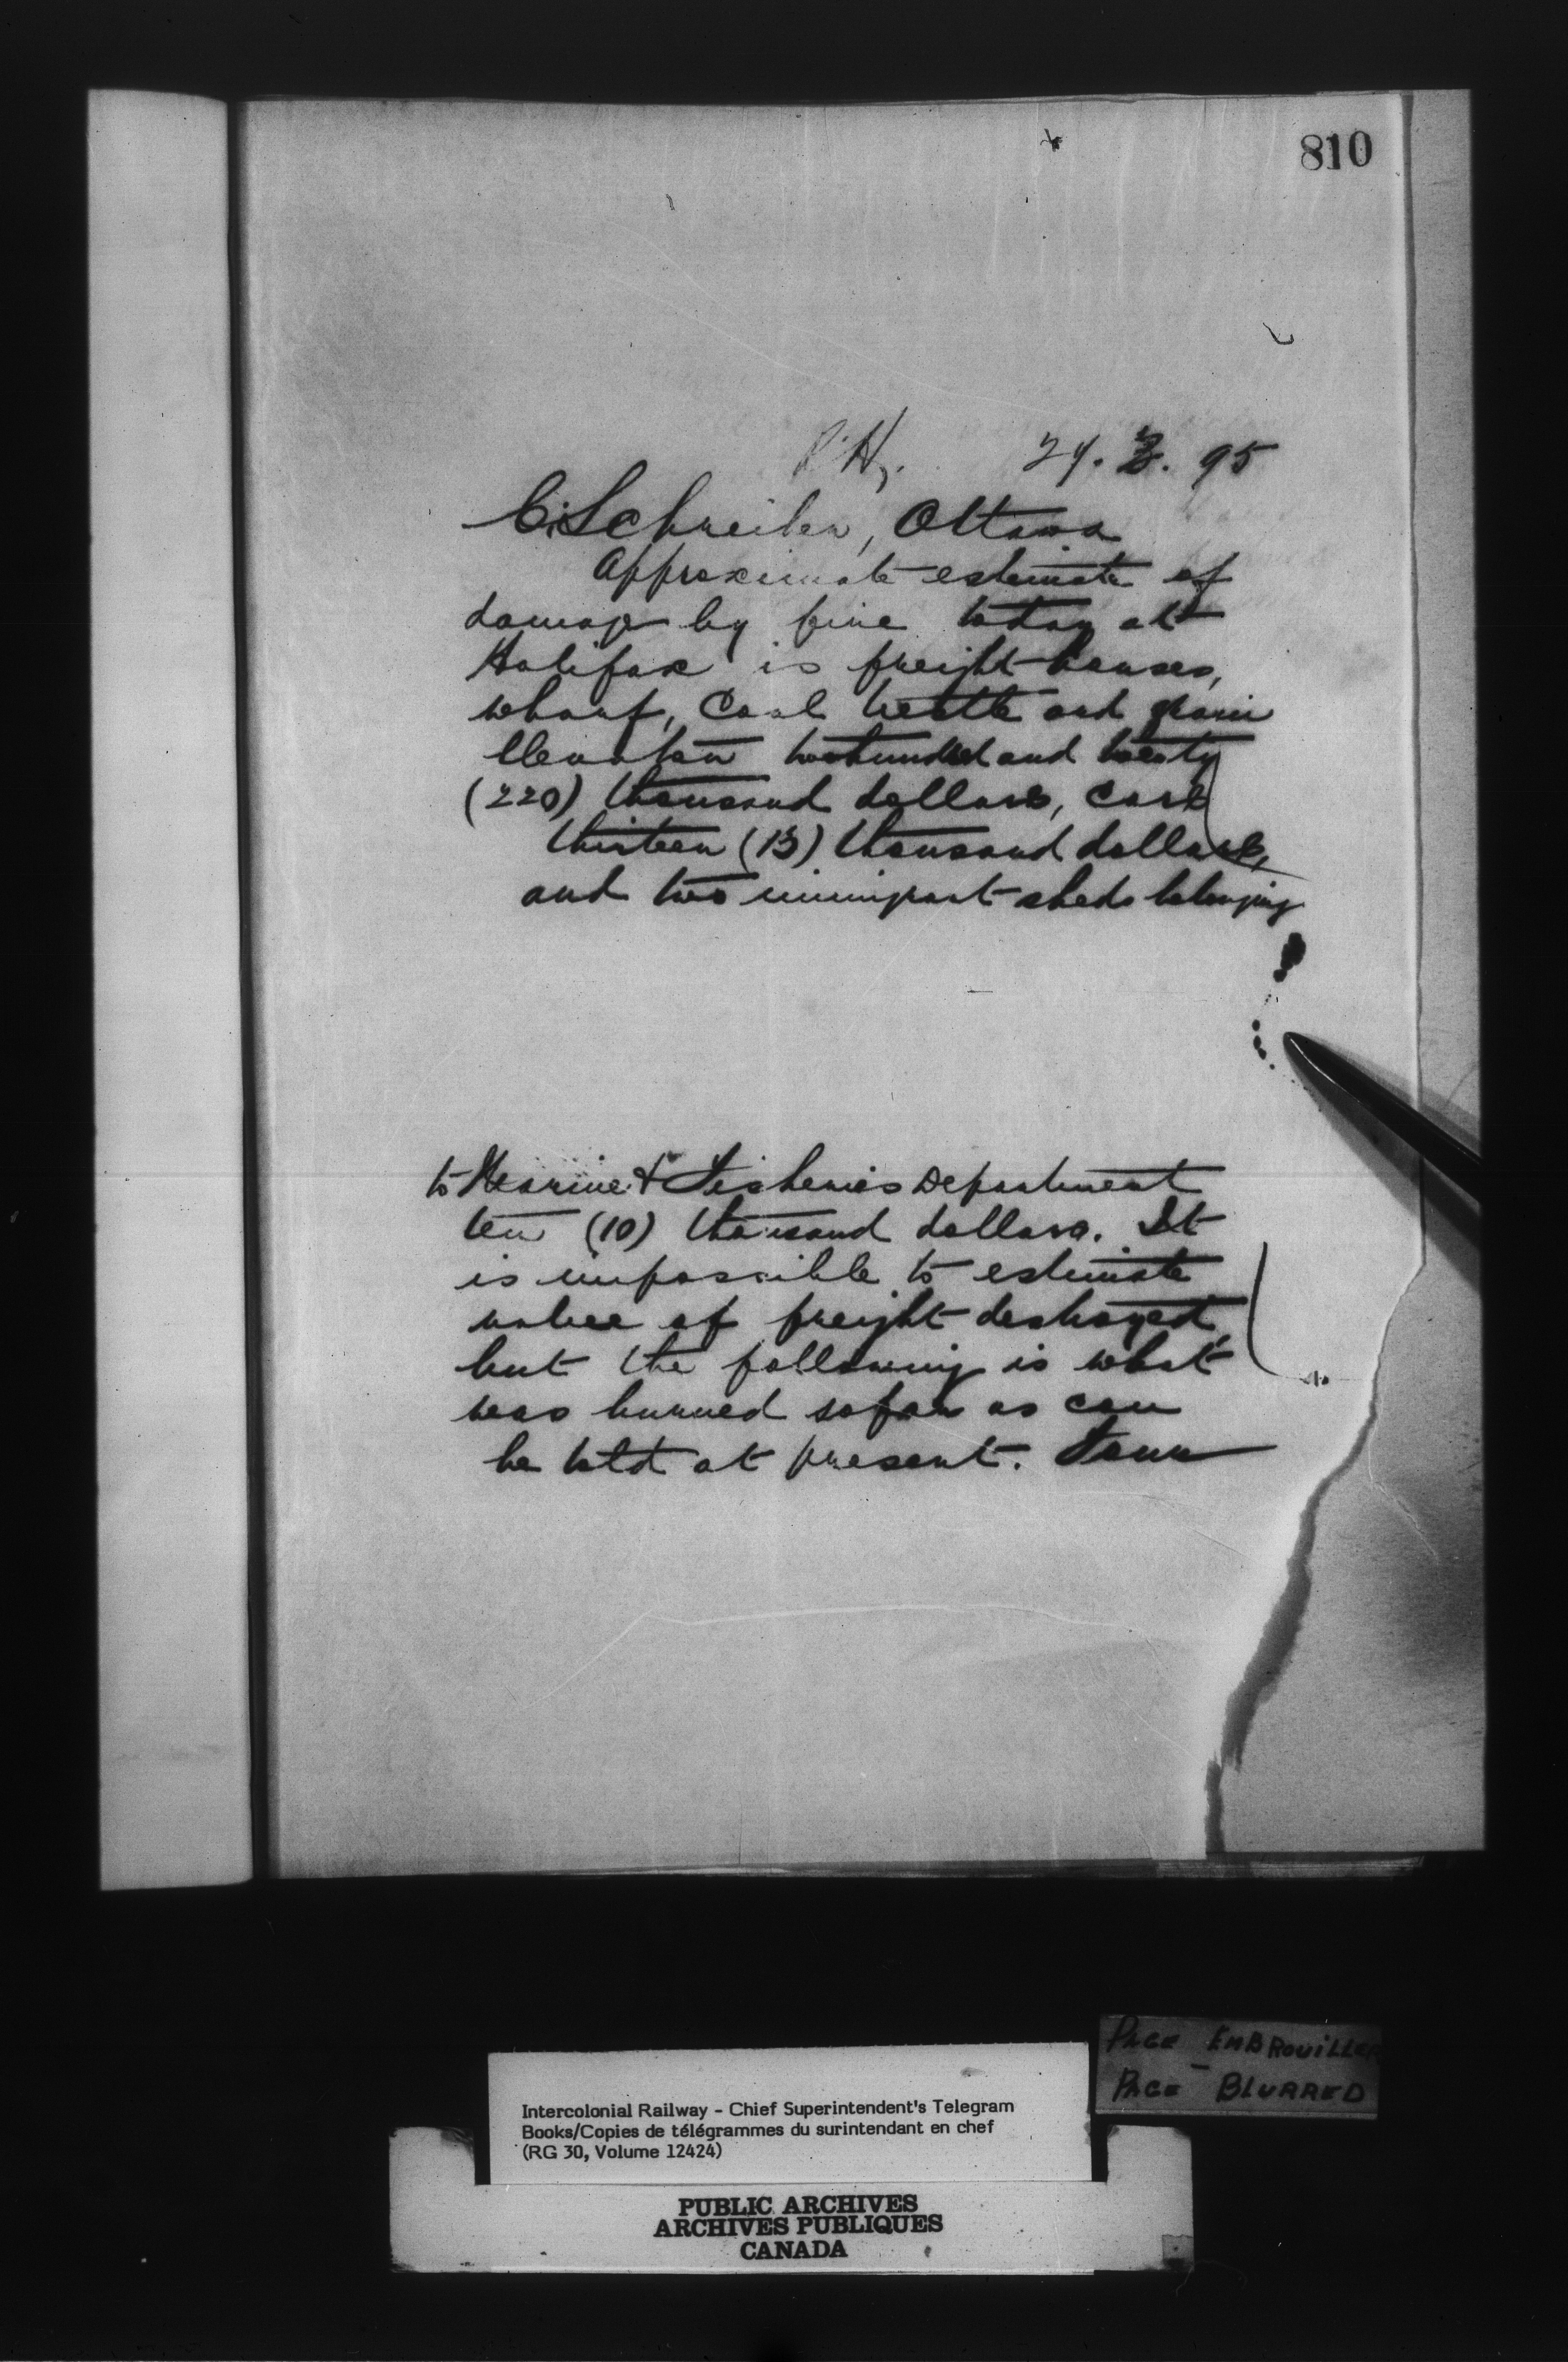 810
24. 2. 95
C. Schreiber, Ottawa
Approximate estimate of
damage by fire today at
Halifax is freight houses,
wharf, Coal trestle and grain
Elevator two hundred and twenty
(220) thousand dollars, cars
thirteen (13) thousand dollars,
and two immigrant sheds belonging
to Marine & Fisheries Department
ten (10) thousand dollars. It
is impossible to estimate
value of freight destroyed,
but the following is what
was burned so far as can
be told at present. Four
PAGE EMBROUILLEE
PAGE BLURRED
Intercolonial Railway - Chief Superintendent's Telegram
Books/Copies de télégrammes du surintendant en chef
(RG 30, Volume 12424)
PUBLIC ARCHIVES
ARCHIVES PUBLIQUES
CANADA